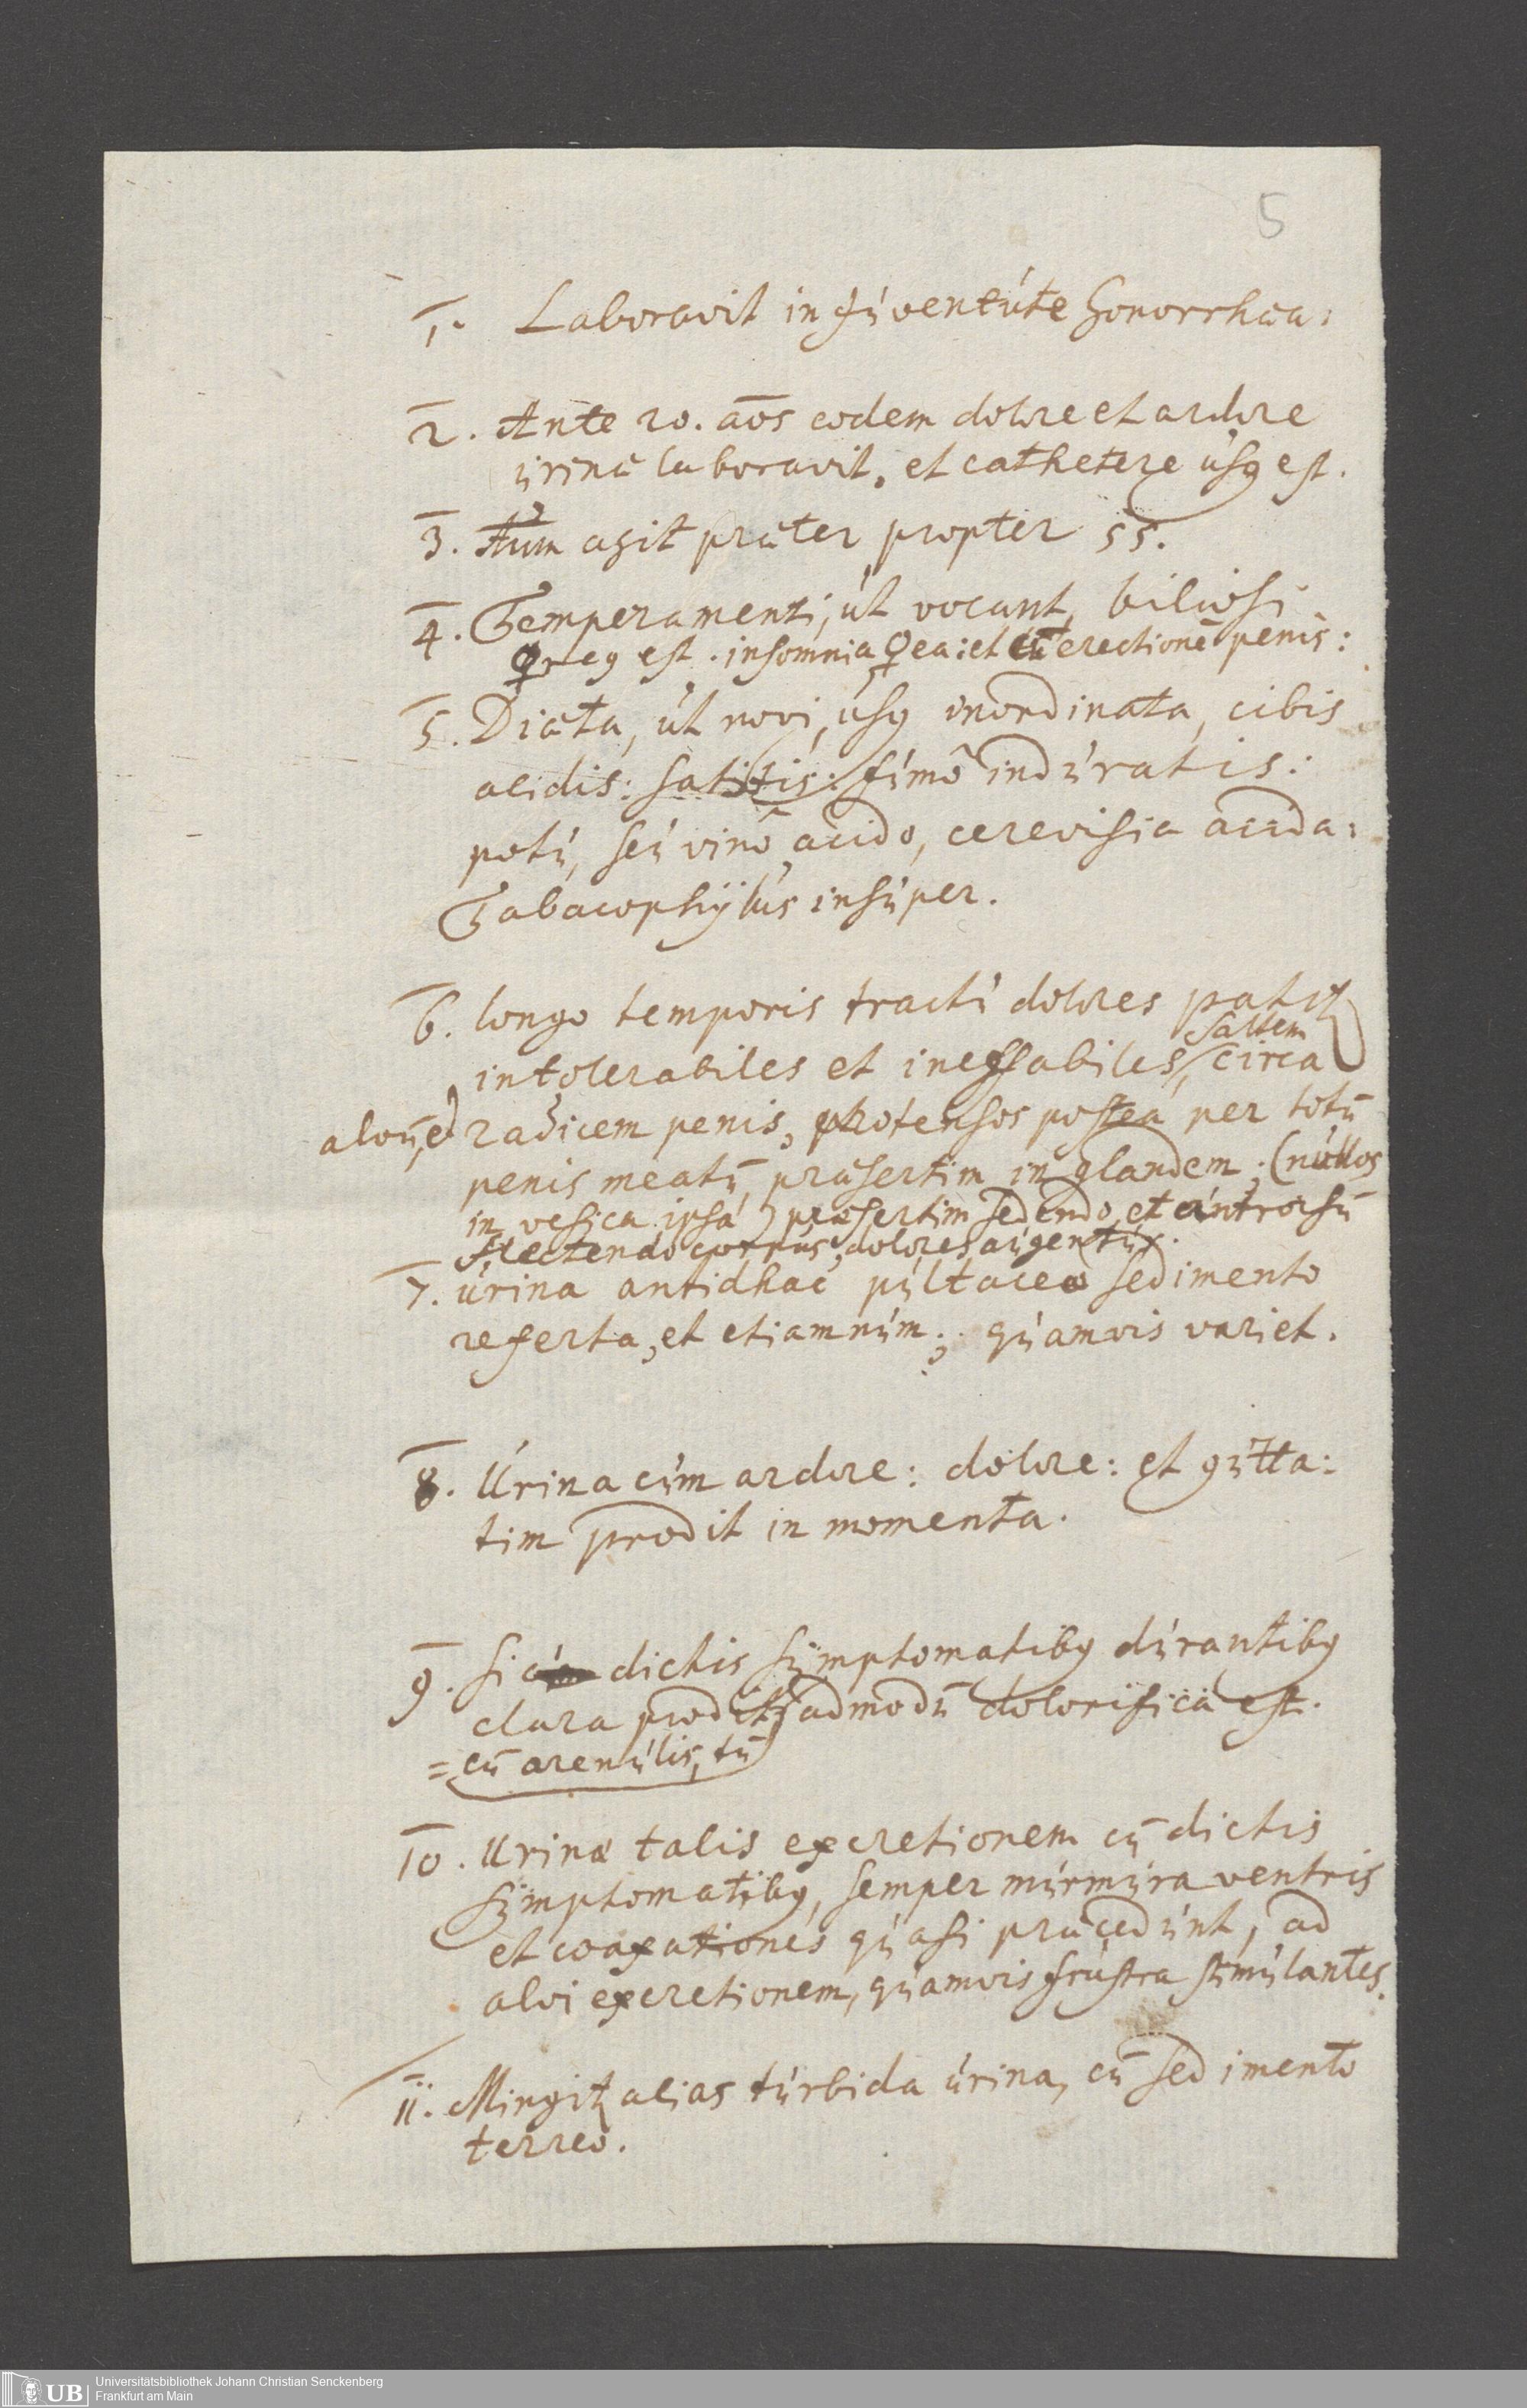 5
1. Laboravit in juventute Gonorrhæa:
2. Ante 20. aōs eodem dolore et ardore
urinæ laboravit, et cathetere usꝯ est.
3. agit præter propter 55.
4. Temperamenti, ut vocant, biliosi
est. insomnia ♀ea: et cū erectionē penis:
5. Diæta, ut novi, usꝯ inordinata, cibis
acidis: salitis: fumô induratis:
potu, seu vinô acido, cerevisia acida:
Tabacophylus insuper.
6. longo temporis tractu dolores patitꝛ
saltem
intolerabiles et ineffabiles, circa
alvū, et radicem penis, protensos postea per totū
penis meatū, præsertim in glandem; (nullos
in vesica ipsa) præsertim sedendo, et antrorsū
flectendo corpus, dolores augentur.
7. urina antidhac pultaceo sedimento
referta, et etiamnum; quamvis variet.
8. Urina cum ardore: dolore: et gutta:
tim prodit in momenta.
9. Si dictis symptomatibꝯ durantibꝯ
clara prodit, admodū dolorifica est.
= cū arenulis, tū
10. Urinæ talis excretionem cū dictis
symptomatibꝯ, semper murmura ventris
et coaxationes quasi præcedunt, ad
alvi excretionem, quamvis frustra stimulantes.
11. Mingitꝛ alias turbida urina, cū sedimento
terreo.
UB Universitätsbibliothek Johann Christian Senckenberg
Frankfurt am Main